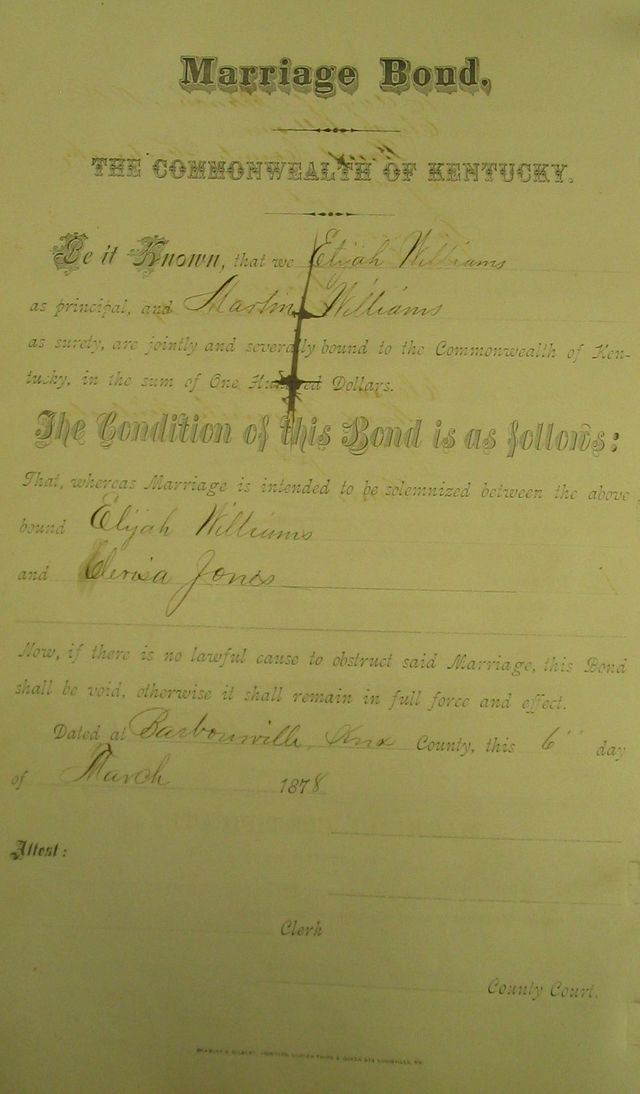 Marriage Bond.
THE COMMONWEALTH OF KENTUCKY.
Be it Known, that we Elijah Williams
as principal, and Martin Williams
as surety, are jointly and severally bound to the Commonwealth of Ken-
tucky, in the sum of One Hundred Dollars.
The Condition of this Bond is as follows:
That, whereas Marriage is intended to be solemnized between the above
bound Elijah Williams
and Jones
Now, if there is no lawful cause to obstruct said Marriage, this Bond
shall be void, otherwise it shall remain in full force and effect.
Dated at Barbourville, Knox County, this 6" day
of March 1878
Attest:
Clerk
County Court.
BRADLEY & GILBERT, PRINTERS, CORNER THIRD & GREEN STS LOUISVILLE, KY.